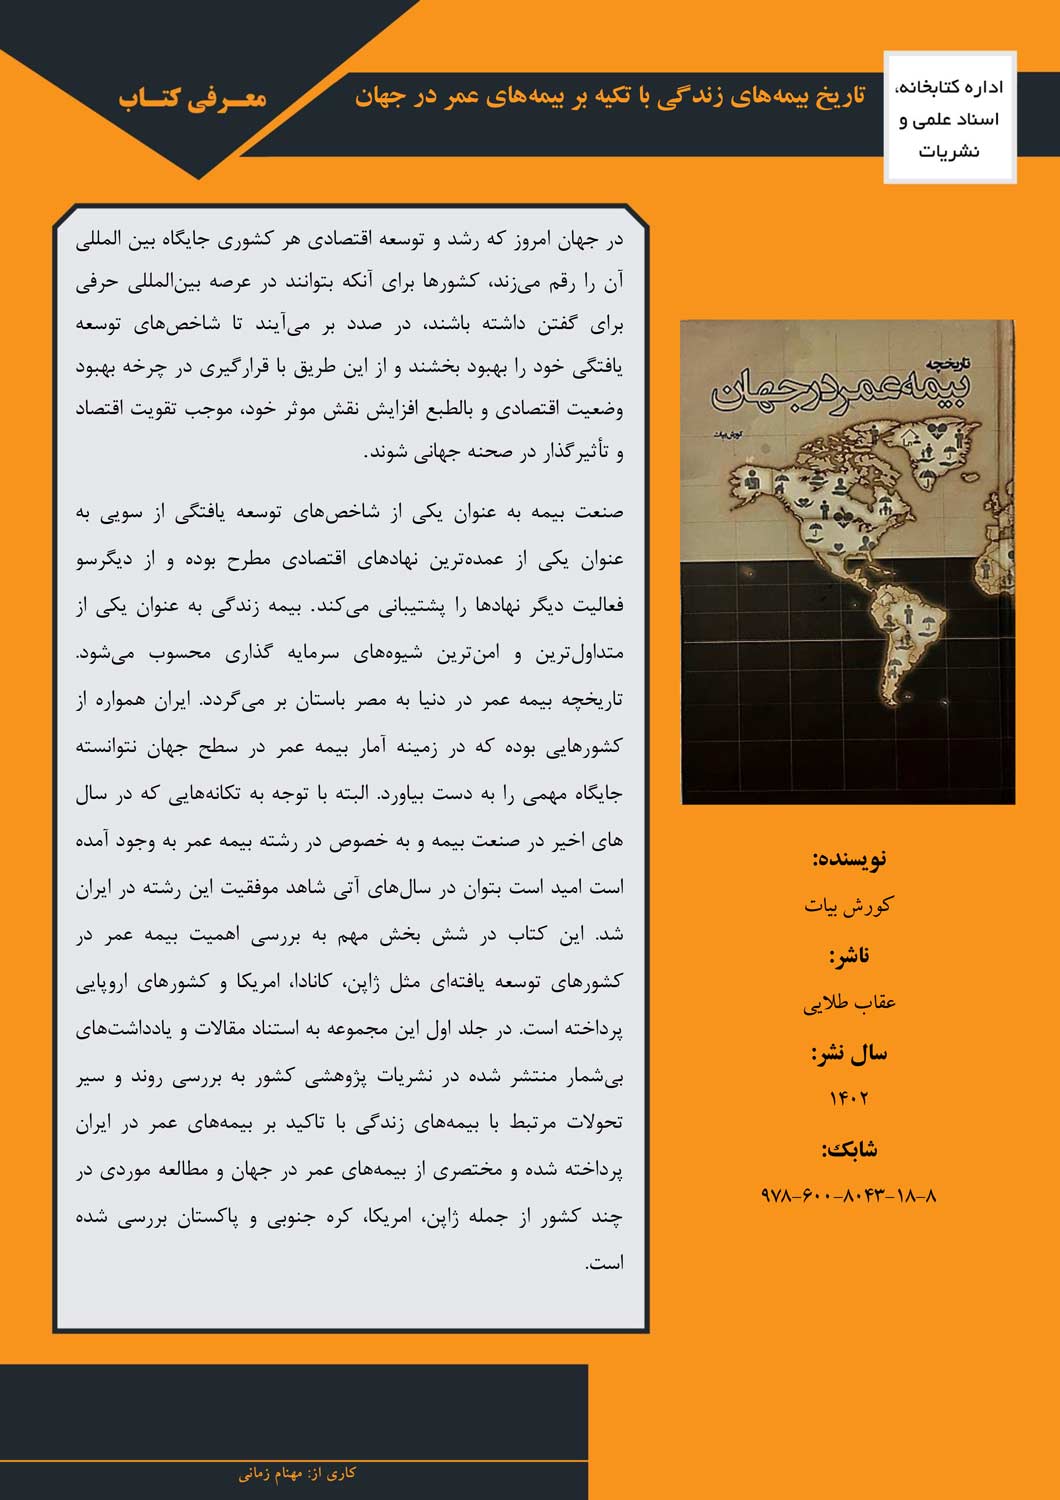 اداره کتابخانه،
اسناد علمی و
نشریات
تاریخ بیمه‌های زندگی با تکیه بر بیمه‌های عمر در جهان
معـــرفی کتـــاب
در جهان امروز که رشد و توسعه اقتصادی هر کشوری جایگاه بین المللی
آن را رقم می‌زند، کشورها برای آنکه بتوانند در عرصه بین‌المللی حرفی
برای گفتن داشته باشند، در صدد بر می‌آیند تا شاخص‌های توسعه
یافتگی خود را بهبود بخشند و از این طریق با قرارگیری در چرخه بهبود
وضعیت اقتصادی و بالطبع افزایش نقش موثر خود، موجب تقویت اقتصاد
و تأثیرگذار در صحنه جهانی شوند.
صنعت بیمه به عنوان یکی از شاخص‌های توسعه یافتگی از سویی به
عنوان یکی از عمده‌ترین نهادهای اقتصادی مطرح بوده و از دیگرسو
فعالیت دیگر نهادها را پشتیبانی می‌کند. بیمه زندگی به عنوان یکی از
متداول‌ترین و امن‌ترین شیوه‌های سرمایه گذاری محسوب می‌شود.
تاریخچه بیمه عمر در دنیا به مصر باستان بر می‌گردد. ایران همواره از
کشورهایی بوده که در زمینه آمار بیمه عمر در سطح جهان نتوانسته
جایگاه مهمی را به دست بیاورد. البته با توجه به تکانه‌هایی که در سال
های اخیر در صنعت بیمه و به خصوص در رشته بیمه عمر به وجود آمده
است امید است بتوان در سال‌های آتی شاهد موفقیت این رشته در ایران
شد. این کتاب در شش بخش مهم به بررسی اهمیت بیمه عمر در
کشورهای توسعه یافته‌ای مثل ژاپن، کانادا، امریکا و کشورهای اروپایی
پرداخته است. در جلد اول این مجموعه به استناد مقالات و یادداشت‌های
بی‌شمار منتشر شده در نشریات پژوهشی کشور به بررسی روند و سیر
تحولات مرتبط با بیمه‌های زندگی با تاکید بر بیمه‌های عمر در ایران
پرداخته شده و مختصری از بیمه‌های عمر در جهان و مطالعه موردی در
چند کشور از جمله ژاپن، امریکا، کره جنوبی و پاکستان بررسی شده
است.
تاریخچه
بیمه عمر در جهان
کورش بیات
نویسنده:
کورش بیات
ناشر:
عقاب طلایی
سال نشر:
۱۴۰۲
شابک:
۹۷۸-۶۰۰-۸۰۴۳-۱۸-۸
کاری از: مهنام زمانی